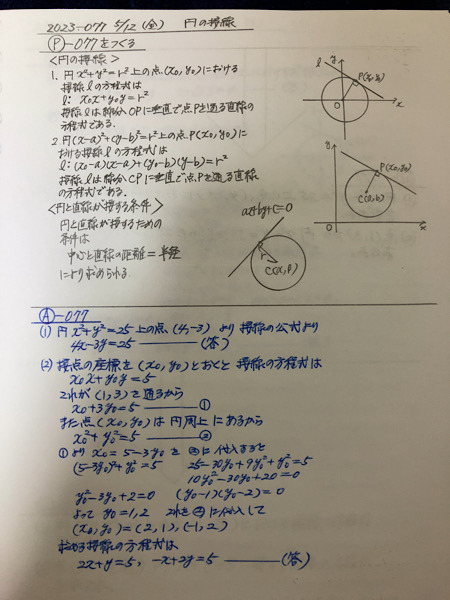 2023-077 5/12 (金) 円の接線
Ⓟ-077をつくる
<円の接線>
1. 円x²+y²=r²上の点(x₀,y₀)における
接線lの方程式は
l: x₀x+y₀y=r²
接線lは線分OPに垂直で点Pを通る直線の
方程式である.
2 円(x-a)²+(y-b)²=r²上の点P(x₀,y₀)に
おける接線lの方程式は
l:(x₀-a)(x-a)+(y₀-b)(y-b)=r²
接線lは線分CPに垂直で点Pを通る直線
の方程式である.
<円と直線が接する条件>
円と直線が接するための
条件は
中心と直線の距離=半径
により求められる.
l
y
P(x₀,y₀)
O
x
l
y
P(x₀,y₀)
C(a,b)
O
x
ax+by+c=0
r
C(α,β)
Ⓐ-077
(1) 円x²+y²=25上の点(4,-3)より接線の公式より
4x-3y=25 ——(答)
(2) 接点の座標を(x₀,y₀)とおくと接線の方程式は
x₀x+y₀y=5
これが(1,3)を通るから
x₀+3y₀=5 ——①
また点(x₀,y₀)は円周上にあるから
x₀²+y₀²=5 ——②
①よりx₀=5-3y₀を②に代入すると
(5-3y₀)²+y₀²=5 25-30y₀+9y₀²+y₀²=5
10y₀²-30y₀+20=0
y₀²-3y₀+2=0 (y₀-1)(y₀-2)=0
よってy₀=1,2 これを②に代入して
(x₀,y₀)=(2,1),(-1,2)
求める接線の方程式は
2x+y=5, -x+2y=5 ——(答)